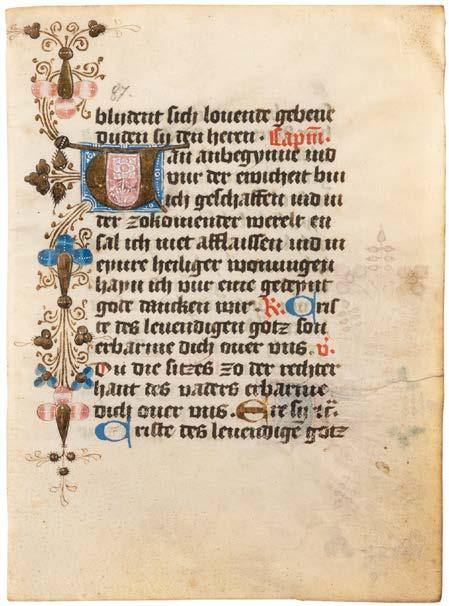 87
blyuent sich lovende gebene
dyden sy den heren. Capm̅.
Uan anbegynne ind
vur der ewicheit byn
ich geschaffen ind in
der zokomender werelt en
sal ich niet afflaissen ind in
eynre heiliger wonungen
hayn ich vur eme gedeynt
gode dancken wir. R: Cris
te des levendigen gotz son
erbarme dich over uns. v̇.
Du die sitzes zo der rechter
hant des vaders erbarme
dich over uns. Ere sy zc̅.
Criste des levendige̅ gotz